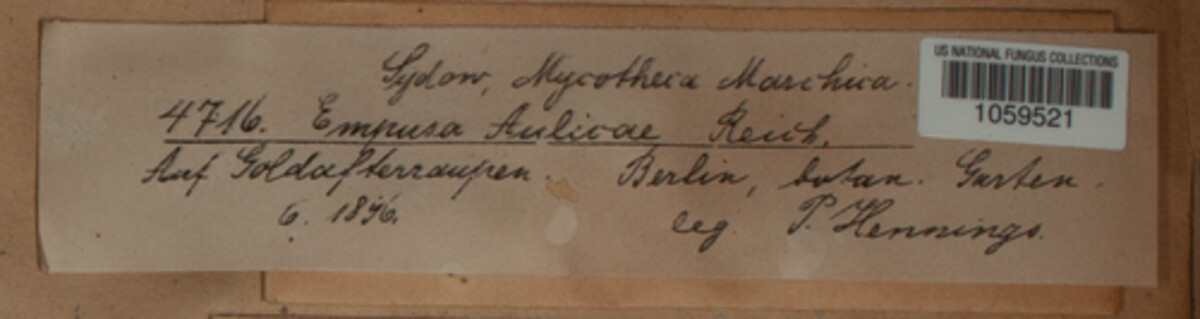 Sydow, Mycotheca Marchica.
4716. Empusa Aulicae Reich.
Auf Goldafterraupen. Berlin, botan. Garten.
6. 1896. leg. P. Hennings.
US NATIONAL FUNGUS COLLECTIONS
1059521